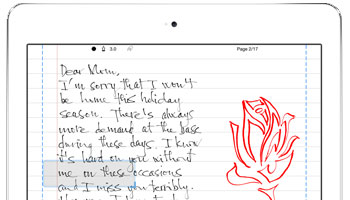 3.0 Page 2/17
Dear Mom,
I'm sorry that I won't
be home this holiday
season. There's always
more demand at the base
during these days. I know
it's hard on you without
me on these occasions
and I miss you terribly.